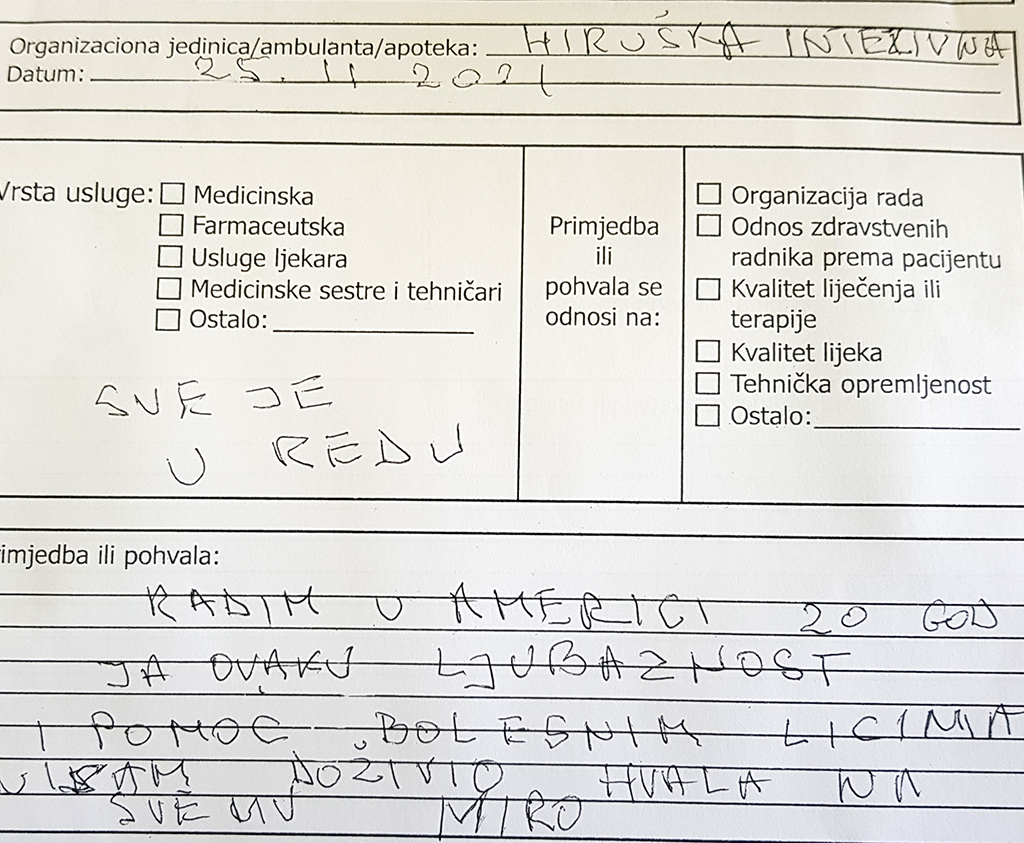 Organizaciona jedinica/ambulanta/apoteka: HIRUŠKA INTEZIVNA
Datum: 25. 11 2021
Vrsta usluge: Medicinska
Farmaceutska
Usluge ljekara
Medicinske sestre i tehničari
Ostalo:
SVE JE
U REDU
Primjedba
ili
pohvala se
odnosi na:
Organizacija rada
Odnos zdravstvenih
radnika prema pacijentu
Kvalitet liječenja ili
terapije
Kvalitet lijeka
Tehnička opremljenost
Ostalo:
rimjedba ili pohvala:
RADIM U AMERICI 20 GOD
JA OVAKU LJUBAZNOST
I POMOC BOLESNIM LICIMA
DOŽIVIO HVALA NA
SVEMU MIRO